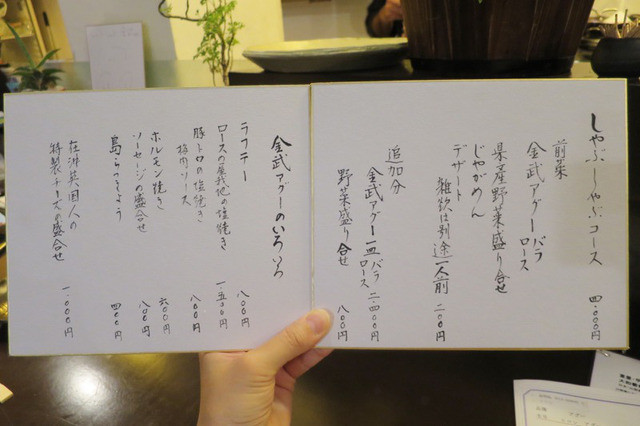 しゃぶしゃぶコース 四、〇〇〇円
前菜
金武アグー バラ
ロース
県産野菜盛り合せ
じゃがめん
デザート
雑炊は別途一人前 二〇〇円
追加分
金武アグー一皿 バラ
ロース 二、四〇〇円
野菜盛り合せ 八〇〇円
金武アグーのいろいろ
ラフテー 八〇〇円
ロースの我他の塩焼き 一、五〇〇円
豚トロの塩焼き
梅肉ソース 八〇〇円
ホルモン焼き 六〇〇円
ソーセージの盛合せ 八〇〇円
島らっきょう 四〇〇円
在沖英国人の
特製チーズの盛合せ 一、〇〇〇円